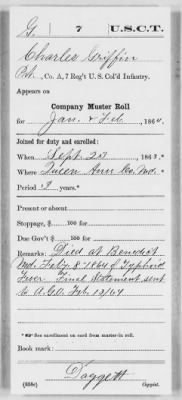 G. 7 U.S.C.T.
Charles Griffin
Pvt., Co. A, 7 Reg't U. S. Col'd Infantry.
Appears on
Company Muster Roll
for Jan. & Feb., 1864.
Joined for duty and enrolled:
When Sept. 23, 1863.*
Where Queen Ann Co. Md. *
Period 3 years.*
Present or absent
Stoppage, $ 100 for
Due Gov't $ 100 for
Remarks: Died at Benedict
Md. Feby. 8. 1864 of Typhoid
Fever. Final Statement sent
to A.G.O. Feb. 13/64
* See enrollment on card from muster-in roll.
Book mark:
Daggett
(358c) Copyist.